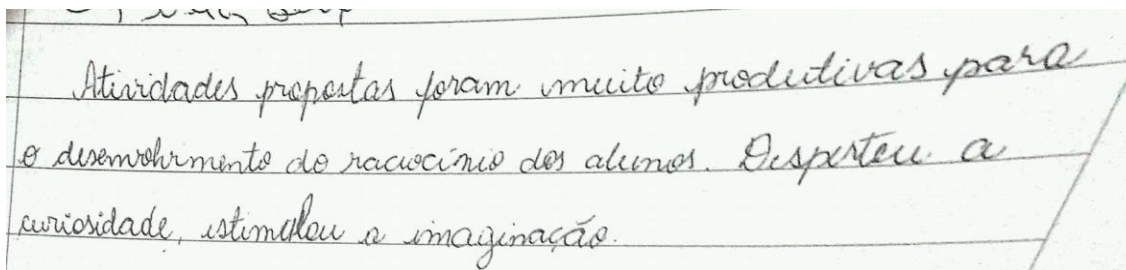 Atividades propostas foram muito produtivas para
o desenvolvimento do raciocínio dos alunos. Despertou a
curiosidade, estimulou a imaginação.